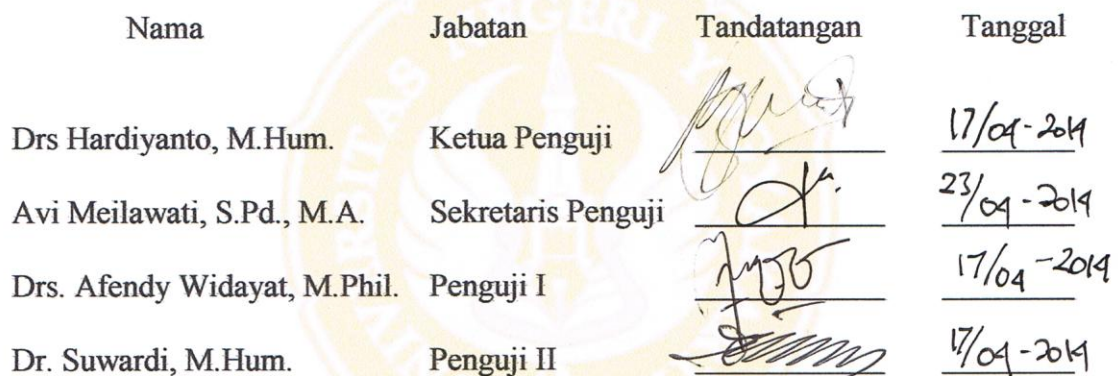 Nama Jabatan Tandatangan Tanggal
Drs Hardiyanto, M.Hum. Ketua Penguji 17/04-2014
Avi Meilawati, S.Pd., M.A. Sekretaris Penguji 23/04-2014
Drs. Afendy Widayat, M.Phil. Penguji I 17/04-2014
Dr. Suwardi, M.Hum. Penguji II 17/04-2014